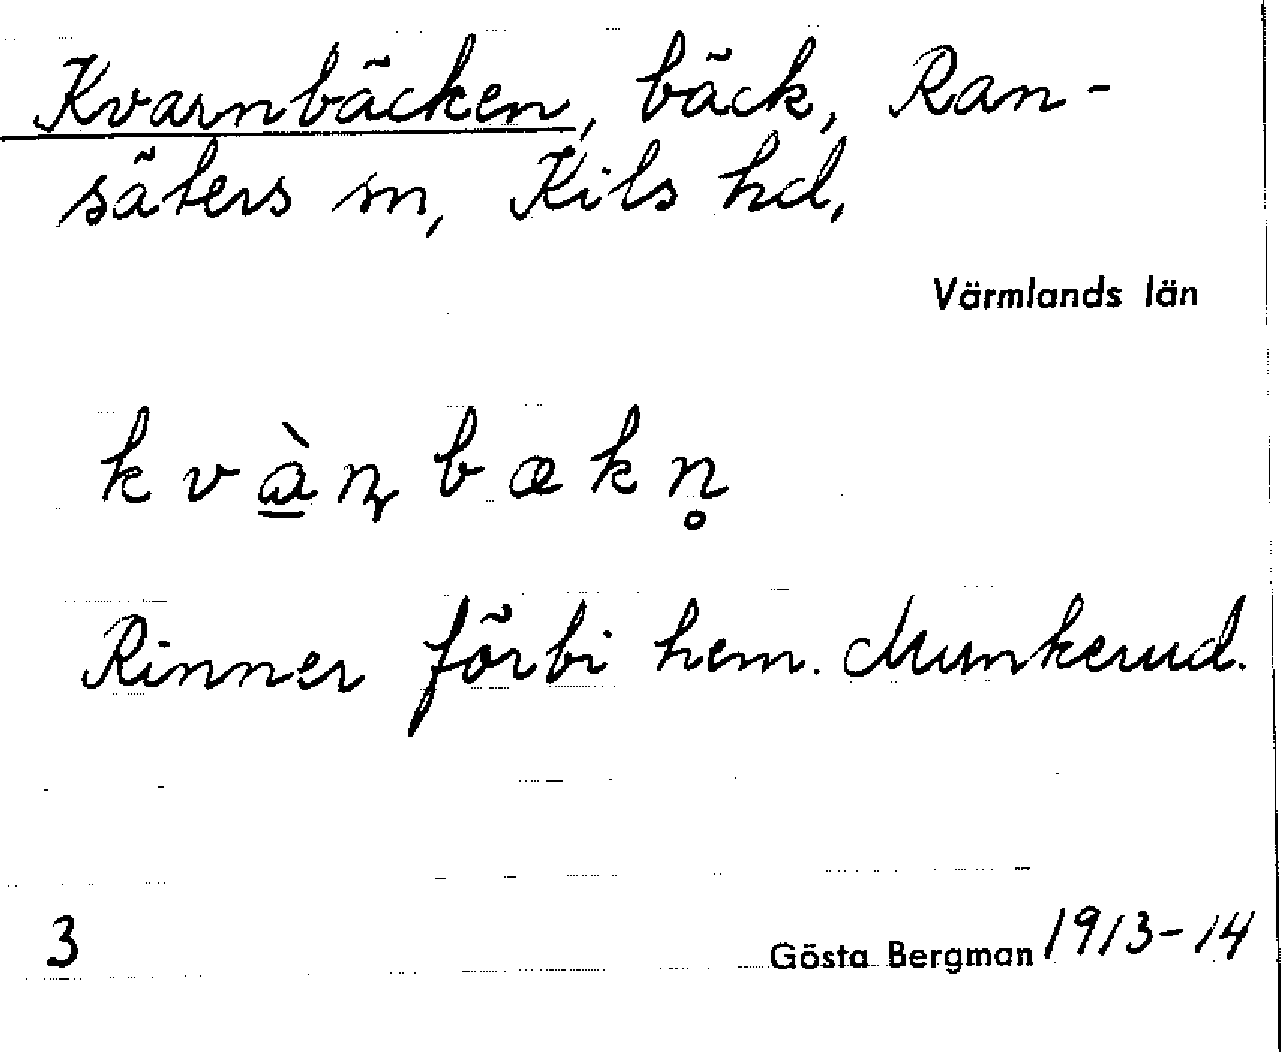 Kvarnbäcken, bäck, Ran-
säters sn, Kils hd,
Värmlands län
k v à̱ ɳ b æ k n̥
Rinner förbi hem. Munkerud.
3
Gösta Bergman 1913-14